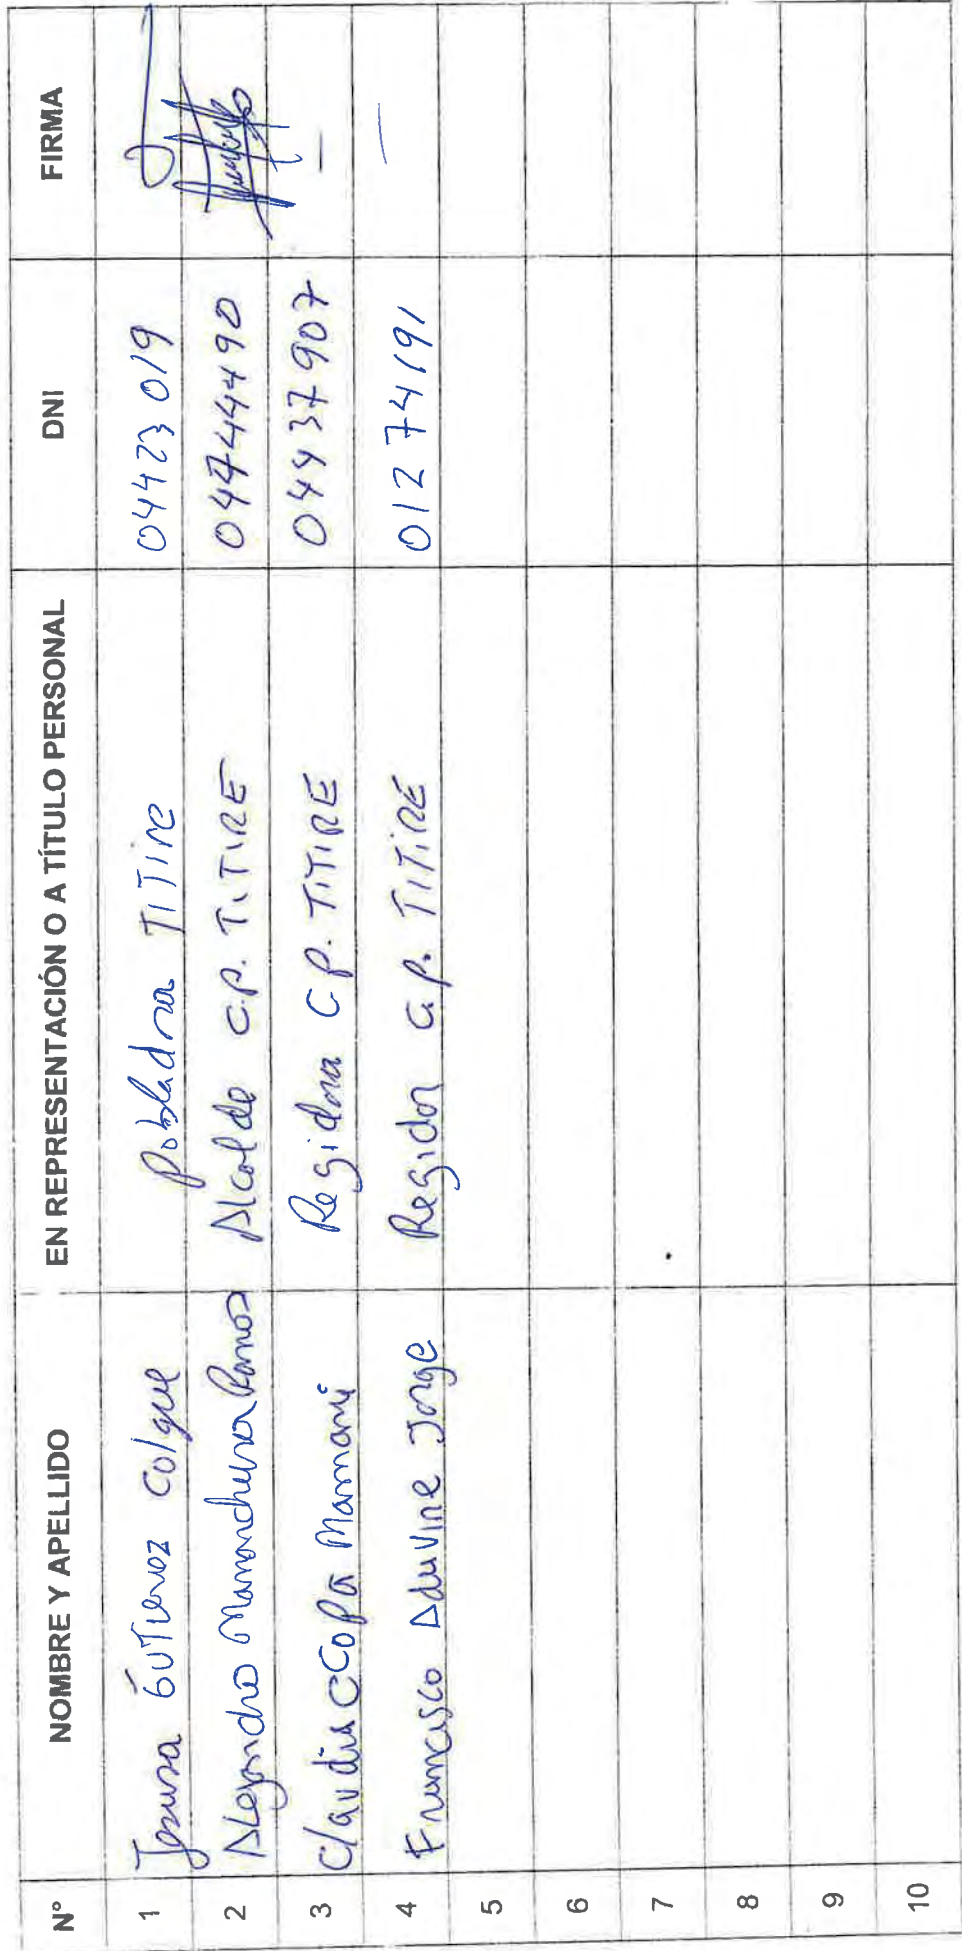 N° NOMBRE Y APELLIDO EN REPRESENTACIÓN O A TÍTULO PERSONAL DNI FIRMA
1 Jesusa Gutierrez Colque Pobladora TITire 04423019
2 Alejandro Mamanchura Ramos Alcalde C.P. TITIRE 04444490
3 Claudia CCOPA Mamani Regidora C.P. TITIRE 04437907 —
4 Francisco Aduvire Jorge Regidor C.P. TITIRE 01274191 —
5
6
7
8
9
10